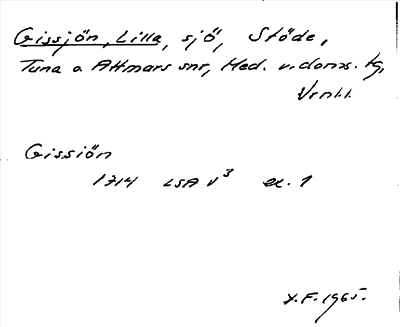 Gissjön, Lilla, sjö, Stöde,
Tuna o. Attmars snr, Med. v. doms. tg,
Vrnl.l.
Gissiön
1714 LSA V³ ex. 1
Y.F. 1965.